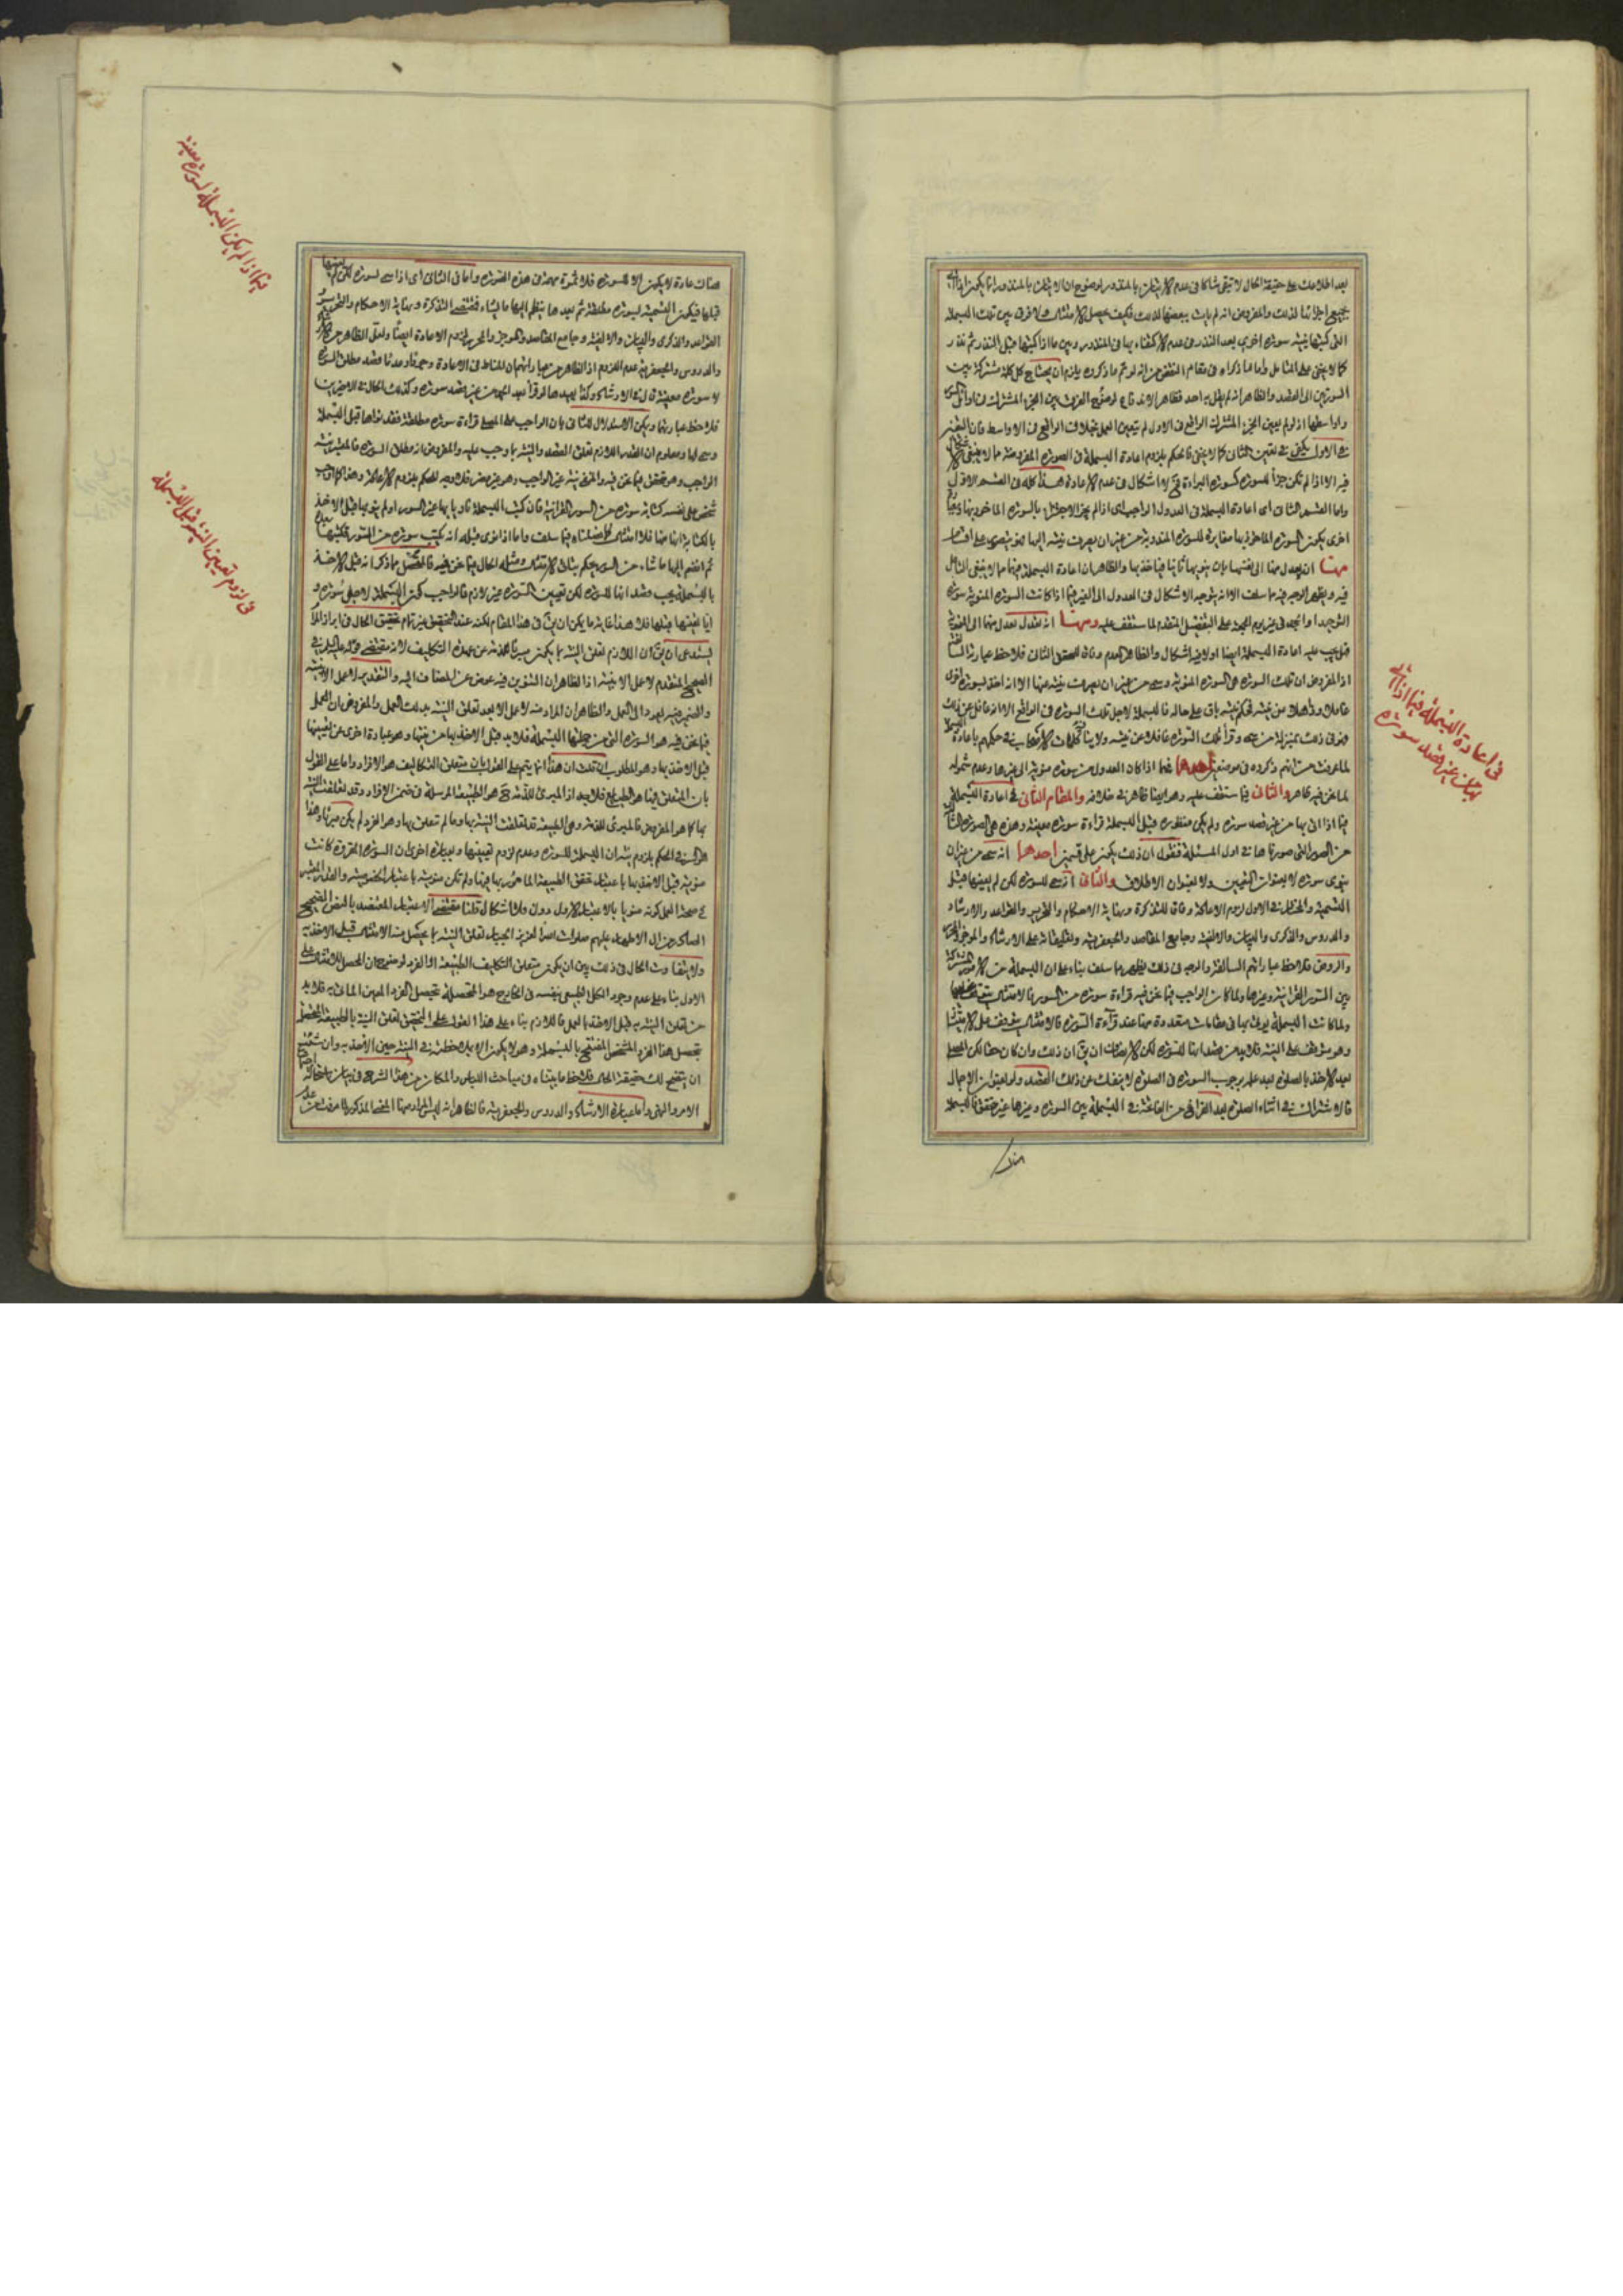 بعد اطلاعك على حقيقة الحال لا تبقى شاكا في عدم الاتيان بالمنذور لوضوح ان الاتيان بالمنذور انما يكون اذا اتى
بجميع اجزائه لذلك والمفروض انه لم يات ببعضها لذلك فكيف يحصل الامتثال ولا فرق بين تلك البسملة
التي كتبها بنية سورة اخرى بعد النذر في عدم الاكتفاء بها في المنذور وبين ما اذا كتبها قبل النذر ثم نذر
كما لا يخفى على المتامل واما ما ذكراه في مقام النقض من انه لو تم ما ذكروه يلزم ان يحتاج كل كلمة مشتركة بين
السورتين الى القصد والظاهر انه لم يقل به احد فظاهر الاندفاع لوضوح الفرق بين الجزء المشترك في اوائل السور
واواسطها اذ لو لم يعين الجزء المشترك الواقع في الاول لم يتعين العمل بخلاف الواقع في الاواسط فان التعيين
في الاول يكفي في تعيين الثاني كما لا يخفى فالحكم بلزوم اعادة البسملة في الصورة المفروضة مما لا ينبغي
فيه الا اذا لم تكن جزأ للسورة كسورة البراءة فلا اشكال في عدم الاعادة هذا كله في القسم الاول
واما القسم الثاني اى اعادة البسملة في العدول الواجب اى اذا لم يجز الاجتزاء بالسورة الماخوذ بها
اخرى بكون السورة الماخوذ بها مغايرة للسورة المنذورة من غير ان يصرف نيته اليها فهو يتصور على اقسام
منها ان يعدل منها الى نفسها بان ينويها ثانيا فياخذ بها والظاهر ان اعادة البسملة فيها مما لا ينبغي التامل
فيه ويظهر الوجه فيه مما سلف الا انه يتوجه الاشكال في العدول الى الغير فيما اذا كانت السورة المنوية سورة
التوحيد او الجحد في غير يوم الجمعة على التفصيل المتقدم لما ستقف عليه ومنها انه يعدل منها الى المنوية
قبل يجب عليه اعادة البسملة ايضا اولا فيه اشكال والظاهر العدم وفاقا للمحقق الثاني فلاحظ عبارته السالفة
اذ المفروض ان تلك السورة هي السورة المنوية وسمى من غير ان يصرف نيته عنها الا انه اخذ بسورة اخرى
غافلا وذاهلا عن نيته فحكم نيته باق على حاله فالبسملة لاجل تلك السورة في الواقع الا انه غافل عن ذلك
فهو في ذلك بمنزلة من سمى وقرأ تلك السورة غافلا عن نيته ولا ينافي كلمات الاصحاب في حكمهم باعادة البسملة
لما عرفت من انهم ذكروه في موضعين احدهما فيما اذا كان العدول من سورة منوية الى غيرها وعدم شموله
لما نحن فيه ظاهر والثاني فيما ستقف عليه وهو ايضا ظاهر في خلافه والمقام الثاني في اعادة البسملة
فيما اذا اتى بها من غير قصد سورة ولم يكن منظوره قبل البسملة قراءة سورة معينة وهذه هي الصورة الثالثة
من الصور التي صورناها في اول المسئلة فنقول ان ذلك يكون على قسمين احدهما انه سمى من غير ان
ينوى سورة لا بعنوان التعيين ولا بعنوان الاطلاق والثاني انه سمى للسورة لكن لم يعينها قبل
التسمية والمختار في الاول لزوم الاعادة وفاقا للتذكرة ونهاية الاحكام والتحرير والقواعد والارشاد
والدروس والذكرى والبيان والالفية وجامع المقاصد والجعفرية وتعليقاته على الارشاد والموجز الحاوي
والروض فلاحظ عباراتهم السالفة والوجه في ذلك يظهر مما سلف بناء على ان البسملة من الامور المشتركة
بين السور القرآنية وغيرها ولما كان الواجب فيما نحن فيه قراءة سورة من السور فالامتثال
ولما كانت البسملة يؤتى بها في مقامات متعددة منها عند قراءة السورة فالامتثال يتوقف على الاتيان
وهو يتوقف على النية فلا بد من قصد انها للسورة لكن الانصاف ان يق ان ذلك وان كان حقا لكن المصلى
بعد الاخذ بالصلوة بعد علمه بوجوب السورة في الصلوة لا ينفك عن ذلك القصد ولو بعنوان الاجمال
فالاشتراك في اثناء الصلوة بعد الفراغ من الفاتحة في البسملة بين السورة وغيرها غير متحقق فالبسملة
هناك
في اعادة البسملة فيما اذا اتى
بها من غير قصد سورة
هناك عادة لا يكون الا للسورة فلا ثمرة مهمة في هذه الصورة واما في الثاني اى اذا سمى لسورة لكن لم يعينها
قبلها فيكون التسمية لسورة مطلقة ثم بعدها ينظم اليها ما يشاء فمقتضى التذكرة ونهاية الاحكام والتحرير
القواعد والذكرى والبيان والالفية وجامع المقاصد والموجز والمحرر لزوم الاعادة ايضا ولعل الظاهر من الارشاد
والدروس والجعفرية عدم اللزوم اذ الظاهر من عباراتهم ان المناط في الاعادة وعدمها وجودا وعدما قصد مطلق السورة
لا سورة معينة قال في الارشاد وكذا يعيدها لو قرأ بعد الحمد من غير قصد سورة وكذلك الحال في الاخيرين
فلاحظ عبارتهما ويمكن الاستدلال للثاني بان الواجب على المصلى قراءة سورة مطلقة فقد نواها قبل البسملة
وسمى لها ومعلوم ان القدر اللازم تعلق القصد والنية بما وجب عليه والمفروض انه مطلق السورة فالمعينة
الواجب وهو متحقق فيما نحن فيه والمنتفي نية غير الواجب وهو غير مضر فلا وجه للحكم بلزوم الاعادة
شخص على نفسه كتابة سورة من السور القرآنية فان كتب البسملة ناويا بها غير السور او لم ينو بها قبل الاخذ
بالكتابة انها منها فلا امتثال كما فصلناه فيما سلف واما اذا نوى قبله انه يكتب سورة من السور فكتبها
ثم انضم اليها ما شاء من السور يحكم بذلك الامتثال ومثله الحال فيما نحن فيه فالمحصل مما ذكر انه قبل الاخذ
بالبسملة يجب قصد انها للسورة لكن تعيين السورة غير لازم فالواجب كون البسملة لاجل سورة و
اما تعينها قبلها فلا هذا غاية ما يمكن ان يق في هذا المقام لكنه عند التحقيق غير تام تحقيق الحال في ابراز المرام
يستدعى ان يق ان اللازم تعلق النية بما يكون مبرئا للذمة عن عهدة التكاليف لانه مقتضى قوله عليه السلام في
الصحيح المتقدم لا عمل الا بنية اذ الظاهر ان التنوين فيه عوض عن المضاف اليه والتقدير لا عمل الا بنيته
والضمير فيه يعود الى العمل والظاهر ان المراد منه لا عمل الا بعد تعلق النية بذلك العمل والمفروض ان العمل
فيما نحن فيه هو السورة التي من جملتها البسملة فلا بد قبل الاخذ بها من نيتها وهو عبارة اخرى عن تعيينها
قبل الاخذ بها وهو المطلوب ان قلت ان هذا انما يتم على القول بان متعلق التكاليف هو الافراد واما على القول
بان المتعلق فيها هو الطبايع فلا بعد اذ المبرئ للذمة ح هو الطبيعة المرسلة في ضمن الافراد وقد تعلقت النية
بها كما هو المفروض فالمبرئ للذمة وهى الطبيعة قد تعلقت النية بها وما لم تتعلق بها وهو الفرد لم يكن مبرئا وهذا
هو السر في الحكم بلزوم نية ان البسملة للسورة وعدم لزوم تعيينها وبعبارة اخرى ان السورة المقروة كانت
منوية قبل الاخذ بها باعتبار تحقق الطبيعة المامور بها فيها ولم تكن منوية باعتبار الخصوصية والقدر المعتبر
في صحة العمل كونه منويا بالاعتبار الاول دون الثاني اشكال قلنا مقتضى الاعتبار المعتضد بالنص الصحيح
الصادر عن ال الاطهار عليهم صلوات الله العزيز الجبار تعلق النية بما يحصل منه الامتثال قبل الاخذ به
ولا يتفاوت الحال في ذلك بين ان يكون متعلق التكاليف الطبيعة او الفرد لوضوح ان المحصل للامتثال على
الاول بناء على عدم وجود الكلى الطبيعى بنفسه في الخارج هو المتحصلة بتحصل الفرد المعين الماتى به فلا بد
من تعلق النية به قبل الاخذ بالعمل فاللازم بناء على هذا القول على المحقق تعلق النية بالطبيعة المتحصلة
بتحصل هذا الفرد المشخص المفتتح بالبسملة وهو لا يكون الا بملاحظته في النية حين الاخذ به وان شئت
ان يتضح لك حقيقة الحال فلاحظ ما بيناه في مباحث اللباس والمكان من هذا الشرح في بيان استحالة اجتماع
الامر والنهى واما عبارة الارشاد والدروس والجعفرية فالظاهر انه ليس المراد منها المعنى المذكور لما عرفت من
فيما اذا لم يكن البسملة لسورة معينة
في لزوم تعيين السورة قبل البسملة